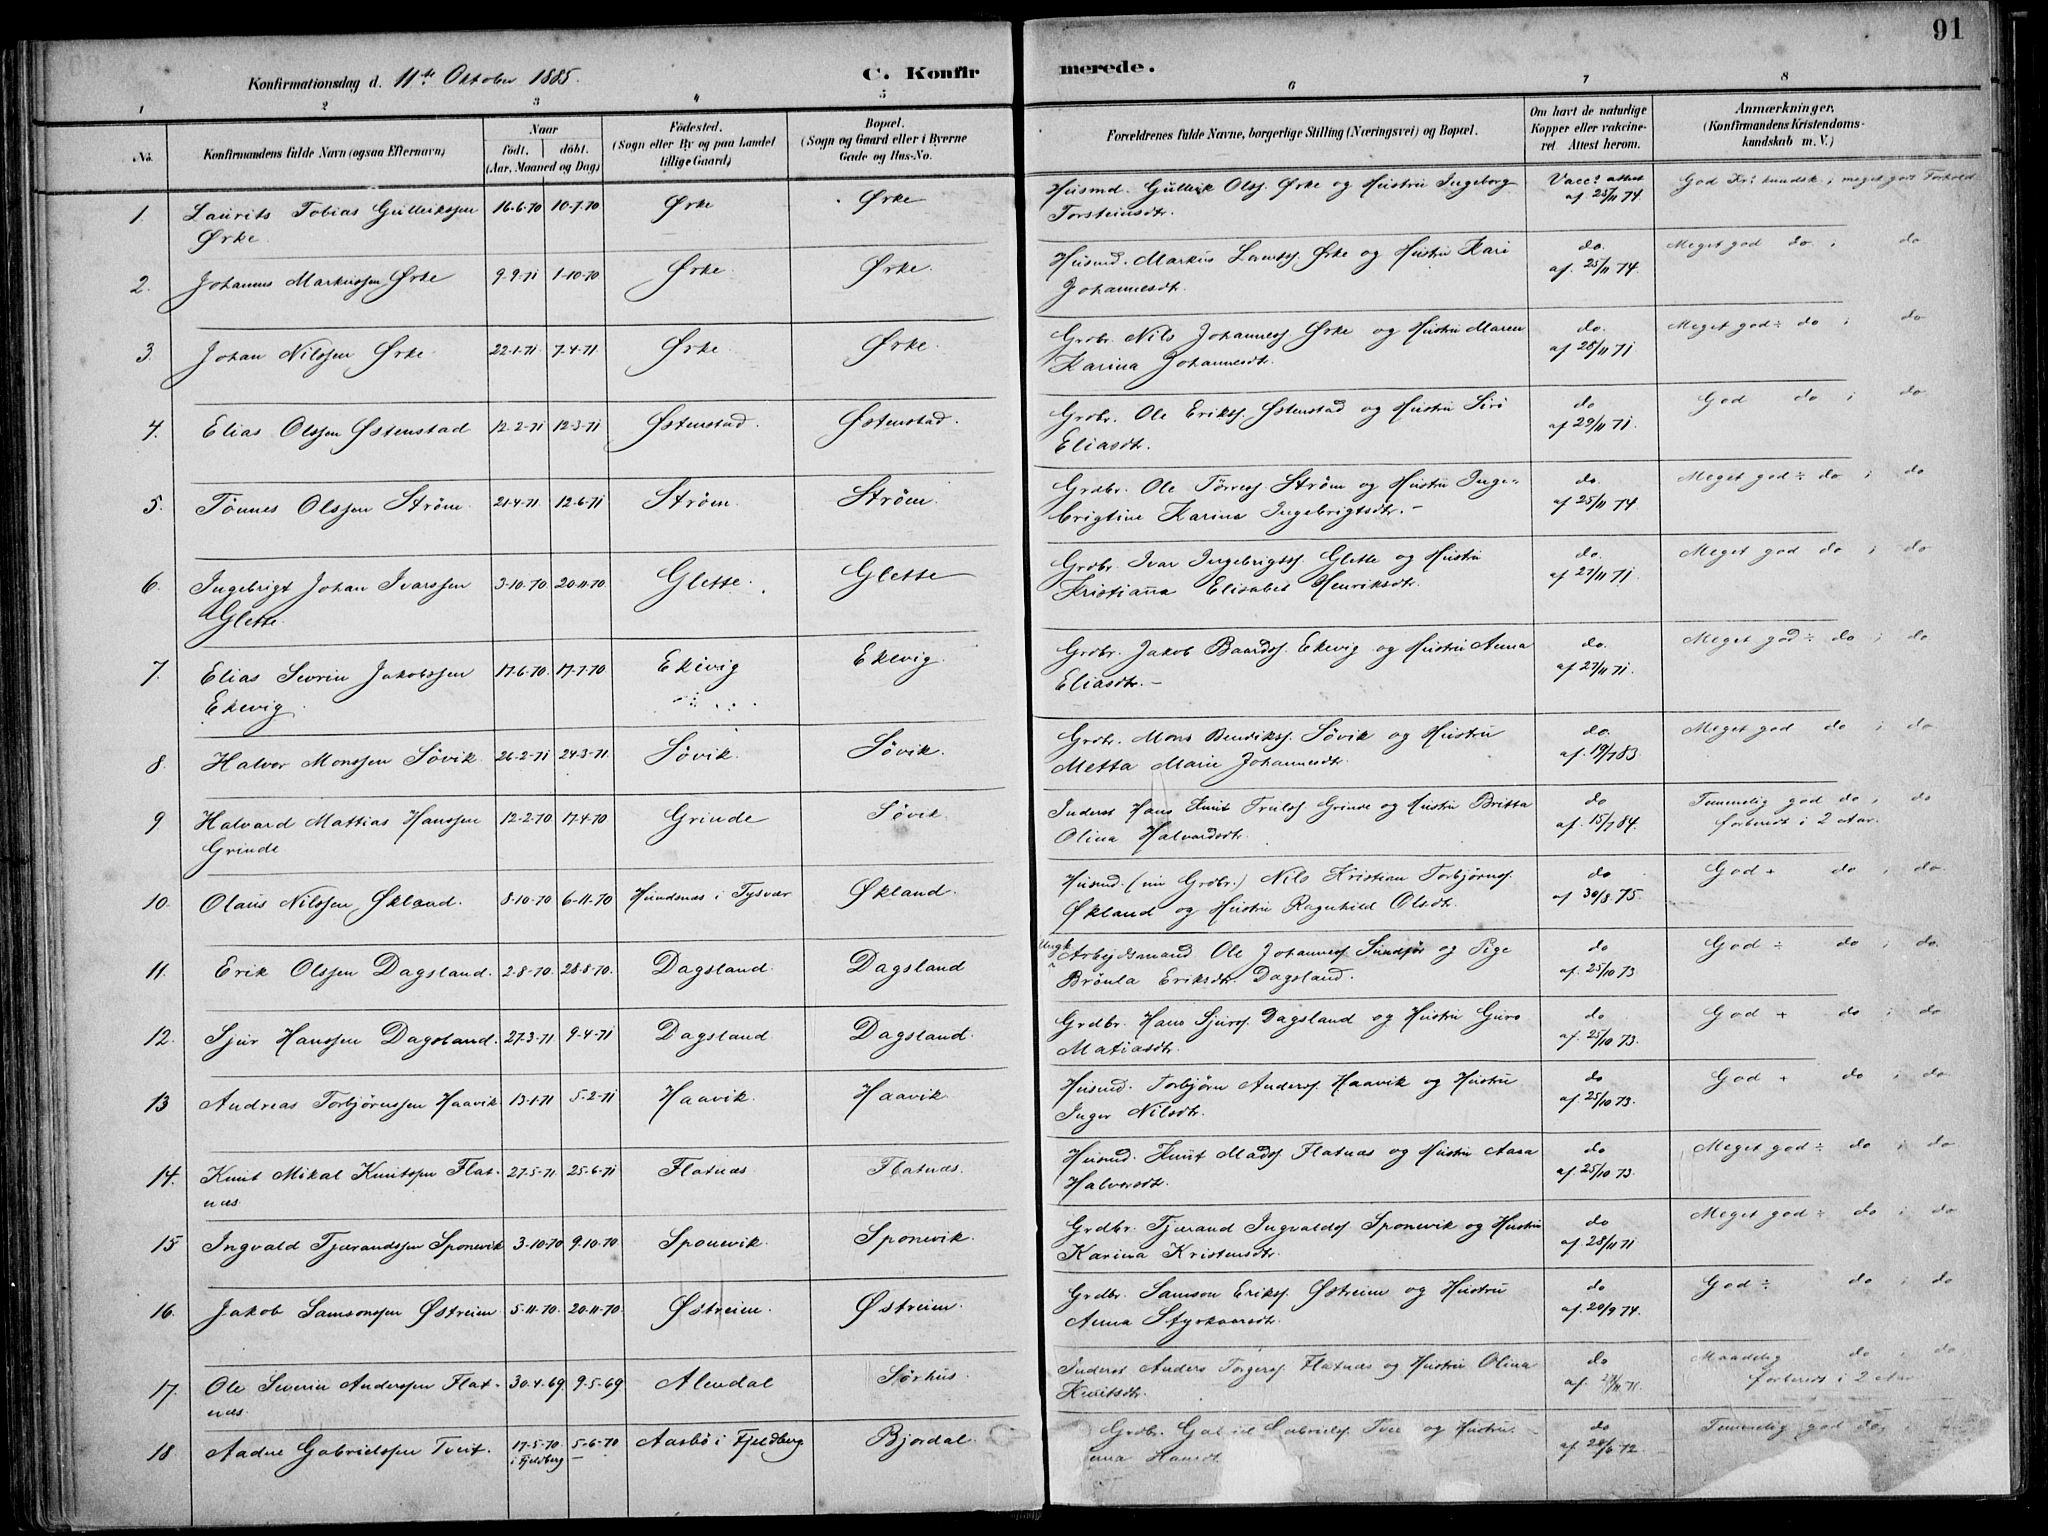 91
Konfirmationsdag d. 11te Oktober 1885.
C. Konfirmerede.
1 2 3 4 5 6 7 8
No.
Konfirmandens fulde Navn (ogsaa Efternavn)
Naar
født. døbt.
(Aar, Maaned og Dag)
Fødested.
(Sogn eller By og paa Landet
tillige Gaard)
Bopæl.
(Sogn og Gaard eller i Byerne
Gade og Hus-No.
Forældrenes fulde Navne, borgerlige Stilling (Næringsvei) og Bopæl.
Om havt de naturlige
Kopper eller vakcine-
ret Attest herom.
Anmærkninger.
(Konfirmandens Kristendoms-
kundskab m. V.)
1. Laurits Tobias Gulleikssen 16-6-70 10-7-70 Ørke Ørke Husmd. Gulleik Olss. Ørke og Hustru Ingeborg Vacc. attest God Kr. kundsk; meget godt Forhold
Ørke. Torsteinsdtr. af 25/11 74.
2. Johannes Markussen Ørke 9-9-71 1-10-70 Ørke. Ørke. Husmd. Markus Ørke og Hustru Kari do. Meget god do ; do
Johannesdtr. af 25/11 74.
3. Johan Nilssen Ørke 22-1-71 7-4-71 Ørke. Ørke. Grdbr. Nils Johanness. Ørke og Hustru Maren do. Meget god ÷ do ; do
Karina Johannesdtr. af 28/11 71
4. Elias Olssen Østenstad 12-2-71 12-3-71 Østenstad. Østenstad. Grdbr. Ole Erikss. Østenstad og Hustru Siri do God do ; do
Eliasdtr. af 29/11 71.
5. Tønnes Olssen Strøm 21-4-71 12-6-71 Strøm. Strøm. Grdbr. Ole Tørress. Strøm og Hustru Inge- do. Meget god ÷ do ; do
brigtine Karina Ingebrigtsdtr. – af 25/11 74
6. Ingebrigt Johan Ivarssen 3-10-70 20-11-70 Glette. Glette Grdbr. Ivar Ingebrigtss. Glette og Hustru do. Meget god do ; do
Glette Kristianna Elisabet Henriksdtr. af 27/11 71
7. Elias Sevrin Jakobssen 17-6-70 17-7-70 Ekevig Ekevig. Grdbr. Jakob Baardss. Ekevig og Hustru Anna do. Meget god ÷ do ; do
Ekevig. Eliasdtr. – af 27/11 71.
8. Halvor Monssen Søvik 26-2-71 24-3-71 Søvik. Søvik. Grdbr. Mons Bendikss. Søvik og Hustru do. Meget god do ; do
Metta Marie Johannesdtr. af. 19/7 83
9 Halvard Mattias Hanssen 12-2-70 17-4-70 Grinde Søvik. Inderst Hans Knut Trulss. Grinde og Hustru Britta do Temmelig god do ; do
Grinde Olina Halvardsdtr. af 15/7 84. forberedt i 2 Aar.
10. Olaus Nilssen Økland. 8-10-70 6-11-70 Hundsnæs i Tysvær Økland. Husmd. (nu Grdbr.) Nils Kristian Torbjørnss. do God + do ; do
Økland og Hustru Ragnhild Olsdtr. af 30/8 75.
11. Erik Olssen Dagsland. 2-8-70 28-8-70. Dagsland. Dagsland Ungk. Arbeidsmand Ole Johanness. Sundfør og Pige do God ÷ do ; do.
Brønla Eriksdtr. Dagsland. af. 25/10 73
12. Sjur Hanssen Dagsland. 27-3-71 9-4-71 Dagsland Dagsland. Grdbr. Hans Sjurss. Dagsland og Hustru Guro do God + do ; do
Matiasdtr. af. 25/10 73.
13 Andreas Torbjørnssen Haavik 13-1-71 5-2-71 Haavik. Haavik. Husmd. Torbjørn Anderss. Haavik og Hustru do God + do ; do
Inger Nilsdtr. af. 25/10 73.
14. Knut Mikal Knutssen Flat- 27-5-71 25-6-71 Flatnæs Flatnæs. Husmd. Knut Madss. Flatnæs og Hustru Aasa do Meget god ÷ do ; do
næs Halvorsdtr. af. 25/10 73.
15 Ingvald Tjærandssen Sponevik 3-10-70 9-10-70 Sponevik. Sponevik. Grdbr. Tjærand Ingvaldss. Sponevik og Hustru do Meget god ÷ do ; do
Karina Kristensdtr. af 28/11 71
16. Jakob Samsonssen Østreim 5-11-70. 20-11-70. Østreim. Østreim. Grdbr. Samson Erikss. Østreim og Hustru do God ÷ do ; do
Anna Styrkaarsdtr. af. 20/9 74.
17. Ole Severin Anderssen Flat- 30-4-69 9-5-69 Alendal Sørhus. Inderst Anders Torgerss. Flatnæs og Hustru Olina do Maadelig do ; do
næs. Knutsdtr. af. 71. forberedt i 2 Aar
18. Aadne Gabrielssen Tveit. 17-5-70 5-6-70 Aasbø i Fjeldberg Bjordal. Grdbr. Gabriel Gabrielss. og Hustru do Temmelig god do,
i Fjeldberg Hansdt af 72